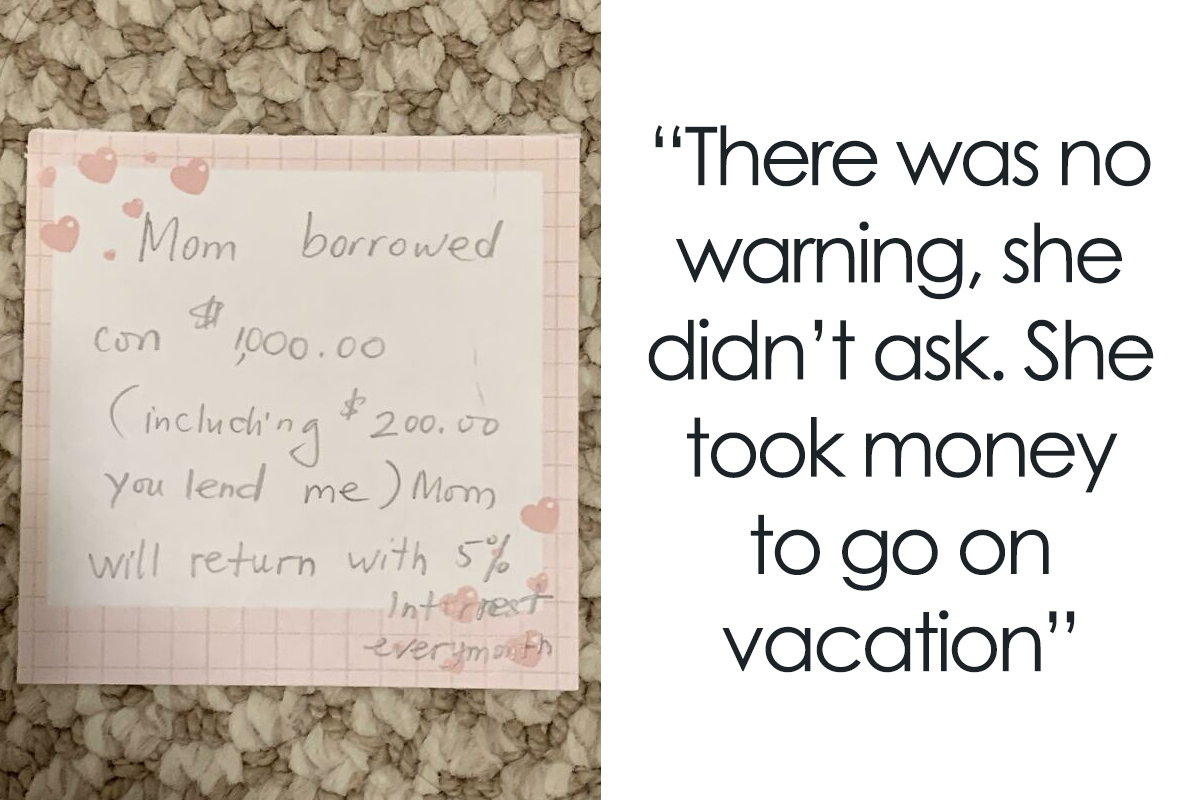 Mom borrowed
con $1,000.00
(including $200.00
you lend me) Mom
will return with 5%
Interrest
everymonth
“There was no
warning, she
didn’t ask. She
took money
to go on
vacation”